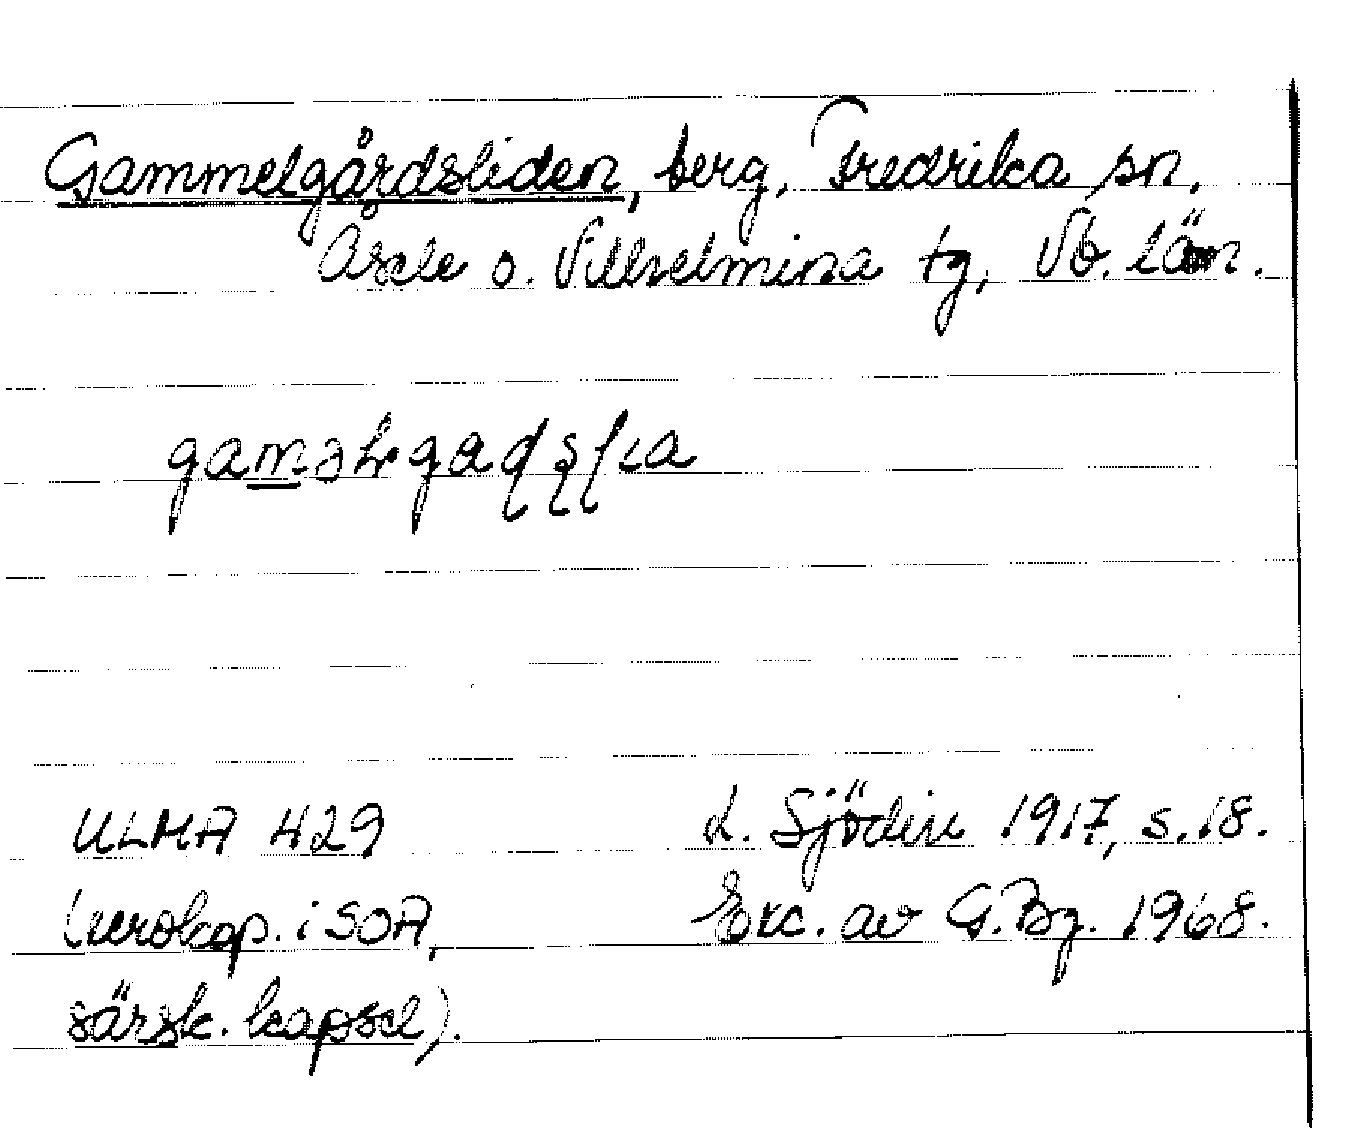 Gammelgårdsliden, berg, Fredrika sn,
Åsele o. Vilhelmina tg, Vb. län.
ULMA 429
L. Sjödin 1917, s. 18.
(xerokop. i SOA,
Exc. av G. Bg. 1968.
särsk. kapsel).